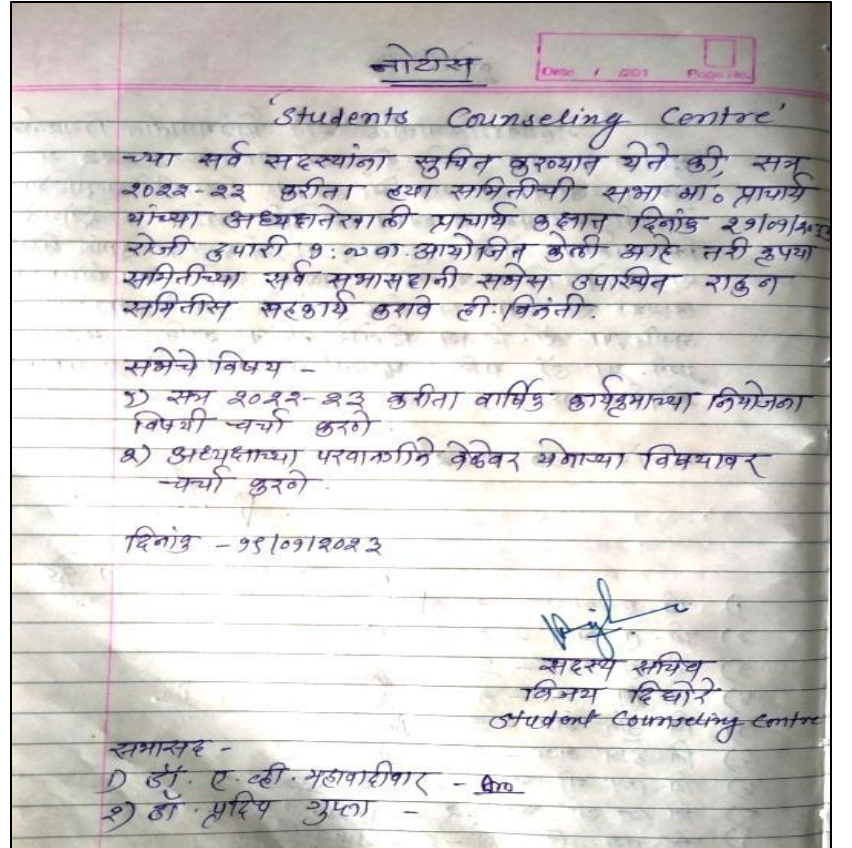 नोटीस
Date / /201 Page No.
'Students Counseling Centre'
च्या सर्व सदस्यांना सुचित करण्यात येते की, सत्र
२०२२-२३ करीता ह्या समितीची सभा मा॰ प्राचार्य
यांच्या अध्यक्षतेखाली प्राचार्य कक्षात दिनांक २१/०१/
रोजी दुपारी वा. आयोजित केली आहे तरी कृपया
समितीच्या सर्व सभासदानी सभेस उपास्थित राहुन
समितीस सहकार्य करावे ही. विनंती.
सभेचे विषय -
१) सत्र २०२२-२३ करीता वार्षिक कार्यक्रमाच्या नियोजना
विषयी चर्चा करणे.
२) अध्यक्षाच्या परवानगीने वेळेवर येणाऱ्या विषयावर
चर्चा करणे.
दिनांक - १९/०१/२०२३
सदस्य सचिव
विजय दिघोरे
Student Counseling Centre
सभासद -
1) डॉ. ए. व्ही. महावादीवार -
२) डॉ. प्रदिप गुप्ता -